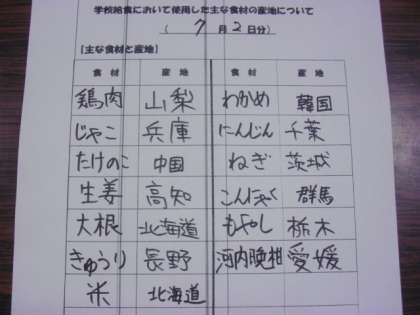 学校給食において使用した主な食材の産地について
( 7 月 2 日分)
【主な食材と産地】
食材 産地 食材 産地
鶏肉 山梨 わかめ 韓国
じゃこ 兵庫 にんじん 千葉
たけのこ 中国 ねぎ 茨城
生姜 高知 こんにゃく 群馬
大根 北海道 もやし 栃木
きゅうり 長野 河内晩柑 愛媛
米 北海道